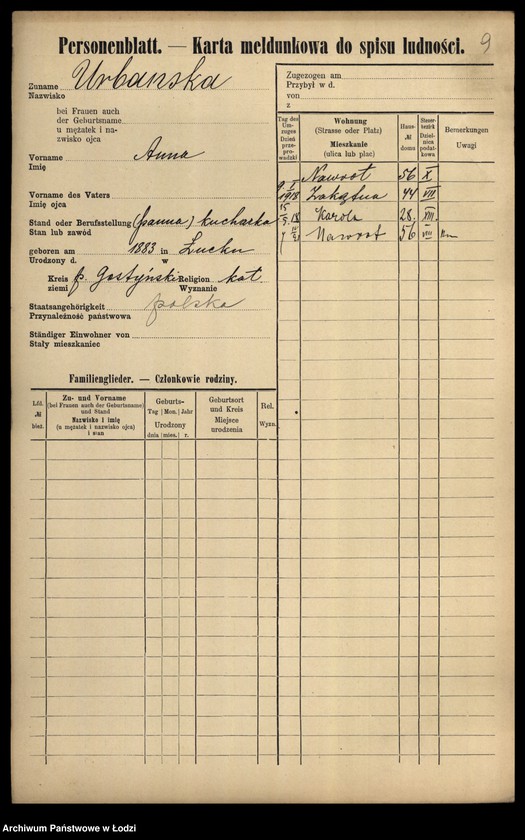 Personenblatt. — Karta meldunkowa do spisu ludności.
9
Zuname Urbanska
Nazwisko
bei Frauen auch
der Geburtsname
u mężatek i na-
zwisko ojca
Vorname Anna
Imię
Vorname des Vaters
Imię ojca
Stand oder Berufsstellung (panna) kucharka
Stan lub zawód
geboren am 1883 in Łucku
Urodzony d. w
Kreis p. Gostyński Religion kat.
ziemi Wyznanie
Staatsangehörigkeit polska
Przynależność państwowa
Ständiger Einwohner von
Stały mieszkaniec
Zugezogen am
Przybył w d.
von
z
Tag des Um-zuges Dzień prze-prowadzki
Wohnung (Strasse oder Platz) Mieszkanie (ulica lub plac)
Haus- № domu
Steuer-bezirk Dziel-nica podat-kowa
Bemerkungen Uwagi
Nawrot 56 X
1918 Zakątna 44 VII
Karola 28. XIII.
Nawrot 56 VIII
Familienglieder. — Członkowie rodziny.
Lfd. № bież.
Zu- und Vorname (bei Frauen auch der Geburtsname) und Stand Nazwisko i imię (a mężatek i nazwisko ojca) i stan
Geburts- Tag Mon. Jahr Urodzony dnia mies. r.
Geburtsort und Kreis Miejsce urodzenia
Rel. Wyzn.
Archiwum Państwowe w Łodzi